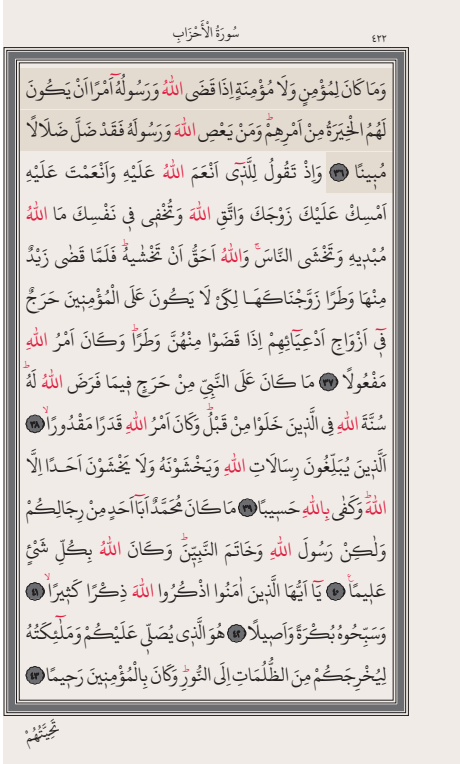 سُورَةُ الْأَحْزَابِ
٤٢٢
وَمَا كَانَ لِمُؤْمِنٍ وَلَا مُؤْمِنَةٍ اِذَا قَضَى اللهُ وَرَسُولُهُٓ اَمْرًا اَنْ يَكُونَ
لَهُمُ الْخِيَرَةُ مِنْ اَمْرِهِمْۜ وَمَنْ يَعْصِ اللهَ وَرَسُولَهُ فَقَدْ ضَلَّ ضَلَالًا
مُبٖينًا ﴿٣٦﴾ وَاِذْ تَقُولُ لِلَّذٖٓى اَنْعَمَ اللهُ عَلَيْهِ وَاَنْعَمْتَ عَلَيْهِ
اَمْسِكْ عَلَيْكَ زَوْجَكَ وَاتَّقِ اللهَ وَتُخْفٖى فٖى نَفْسِكَ مَا اللهُ
مُبْدٖيهِ وَتَخْشَى النَّاسَۚ وَاللهُ اَحَقُّ اَنْ تَخْشٰيهُۜ فَلَمَّا قَضٰى زَيْدٌ
مِنْهَا وَطَرًا زَوَّجْنَاكَهَا لِكَىْ لَا يَكُونَ عَلَى الْمُؤْمِنٖينَ حَرَجٌ
فٖٓى اَزْوَاجِ اَدْعِيَٓائِهِمْ اِذَا قَضَوْا مِنْهُنَّ وَطَرًاۜ وَكَانَ اَمْرُ اللهِ
مَفْعُولًا ﴿٣٧﴾ مَا كَانَ عَلَى النَّبِىِّ مِنْ حَرَجٍ فٖيمَا فَرَضَ اللهُ لَهُۜ
سُنَّةَ اللهِ فِى الَّذٖينَ خَلَوْا مِنْ قَبْلُۜ وَكَانَ اَمْرُ اللهِ قَدَرًا مَقْدُورًاۙ ﴿٣٨﴾
اَلَّذٖينَ يُبَلِّغُونَ رِسَالَاتِ اللهِ وَيَخْشَوْنَهُ وَلَا يَخْشَوْنَ اَحَدًا اِلَّا
اللهَۜ وَكَفٰى بِاللهِ حَسٖيبًا ﴿٣٩﴾ مَا كَانَ مُحَمَّدٌ اَبَٓا اَحَدٍ مِنْ رِجَالِكُمْ
وَلٰكِنْ رَسُولَ اللهِ وَخَاتَمَ النَّبِيّٖنَۜ وَكَانَ اللهُ بِكُلِّ شَىْءٍ
عَلٖيمًا۟ ﴿٤٠﴾ يَٓا اَيُّهَا الَّذٖينَ اٰمَنُوا اذْكُرُوا اللهَ ذِكْرًا كَثٖيرًاۙ ﴿٤١﴾
وَسَبِّحُوهُ بُكْرَةً وَاَصٖيلًا ﴿٤٢﴾ هُوَ الَّذٖى يُصَلّٖى عَلَيْكُمْ وَمَلٰٓئِكَتُهُ
لِيُخْرِجَكُمْ مِنَ الظُّلُمَاتِ اِلَى النُّورِۜ وَكَانَ بِالْمُؤْمِنٖينَ رَحٖيمًا ﴿٤٣﴾
تَحِيَّتُهُمْ